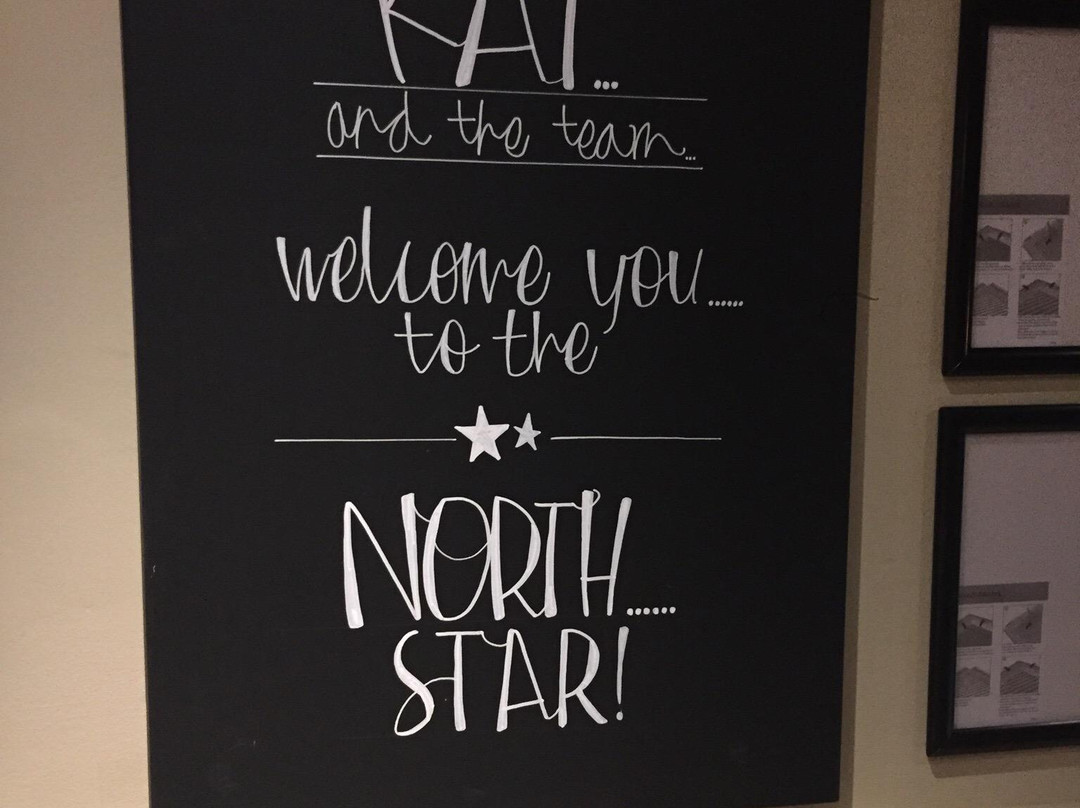 KAT...
and the team...
welcome you......
to the
NORTH......
STAR!